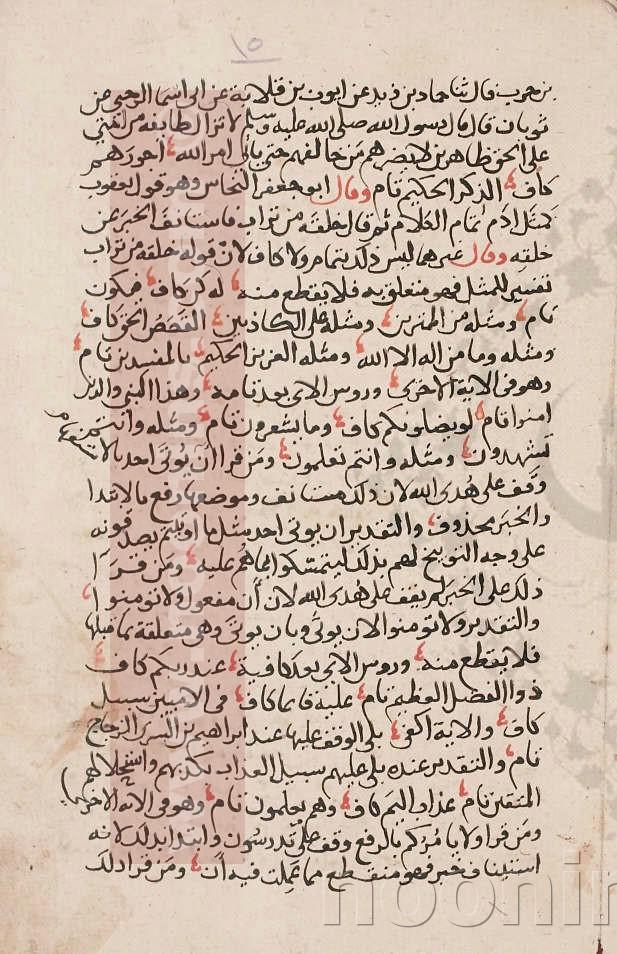 ١٥
بن حرب قال ثنا حماد بن زيد عن ايوب بن قلابة عن ابى اسما الرحبى عن
ثوبان قال قال رسول الله صلى الله عليه وسلم لا تزال طايفة من امتي
على الحق ظاهرين لا يضرهم من خالفهم حتى ياتى امر الله اجورهم
كاف الذكر الحكيم تام وقال ابو جعفر النحاس وهو قول يعقوب
كمثل ادم تمام الكلام ثم قال خلقه من تراب فاستانف الخبر عن
خلقه وقال غيرهما ليس ذلك بتمام ولا كاف لان قوله خلقه من تراب
تفسير للمثل فهو متعلق به فلا يقطع منه له كن كاف فيكون
تام ومثله من الممترين ومثله على الكاذبين القصص الحق كاف
ومثله وما من اله الا الله ومثله العزيز الحكيم بالمفسدين تام
وهو فى الاية الاخرى وروس الاى بعد تامة وهذا النبي والذين
امنوا تام لو يضلونكم كاف وما يشعرون تام ومثله وانتم
تشهدون ومثله وانتم تعلمون ومن قرا أن يؤتى احد بالاستفهام
وقف على هدى الله لان ذلك مستانف وموضعها رفع بالابتدا
والخبر محذوف والتقدير ان يوتى احد مثل ما اوتيتم يصدقونه
على وجه التوبيخ لهم بذلك ليتمسكوا بما هم عليه ومن قرا
ذلك على الخبر لم يقف على هدى الله لان أن مفعول ولا تومنوا
والتقدير ولا تومنوا الا ان يوتى وبان يوتى وهى متعلقة بما قبلها
فلا يقطع منه وروس الاى بعد كافية عند ربكم كاف
ذو الفضل العظيم تام عليه قايما كاف فى الاميين سبيل
كاف والاية اكفى بلى الوقف عليها عند ابراهيم بن السري الزجاج
تام والتقدير عنده بلى عليهم سبيل العذاب بكذبهم واستحلالهم
المتقين تام عذاب اليم كاف وهم يعلمون تام وهو فى الاية الاخرى
ومن قرا ولا يامركم بالرفع وقف على تدرسون وابتدا بذلك لانه
استيناف خبر فهو منقطع مما عملت فيه أن ومن قرا ذلك
noonin